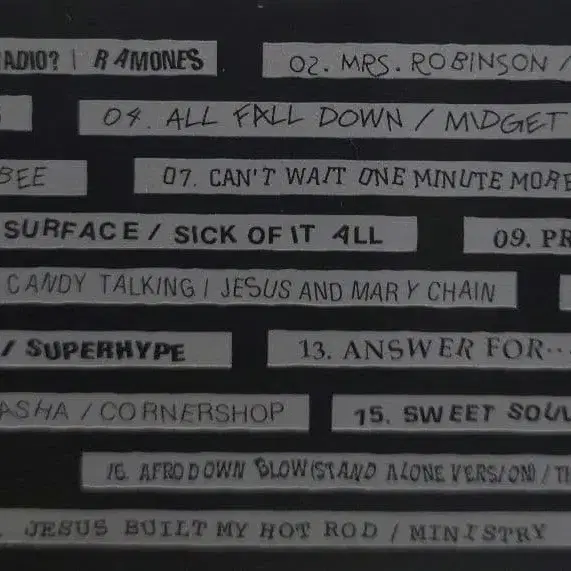 RADIO? | RAMONES 02. MRS. ROBINSON /
04. ALL FALL DOWN / MIDGET
BEE 07. CAN'T WAIT ONE MINUTE MORE
SURFACE / SICK OF IT ALL 09. PR
CANDY TALKING | JESUS AND MARY CHAIN
/ SUPERHYPE 13. ANSWER FOR··
ASHA / CORNERSHOP 15. SWEET SOUL
16. AFRODOWN BLOW (STAND ALONE VERSION) / TH
JESUS BUILT MY HOT ROD / MINISTRY